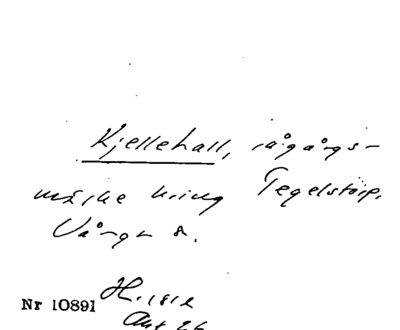 Kjellehall, rågångs-
märke kring Tegelstorp,
Vånga s.
Nr 10891